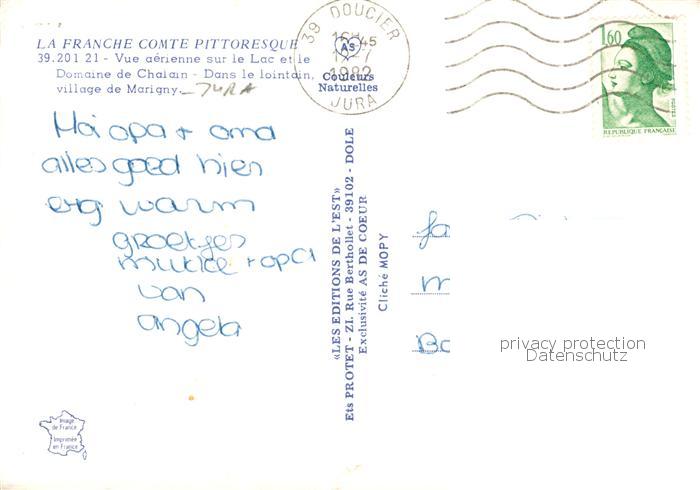 LA FRANCHE COMTE PITTORESQUE
39.201 21 - Vue aérienne sur le Lac et le
Domaine de Chalain - Dans le lointain,
village de Marigny.
JURA
AS
Couleurs
Naturelles
39 DOUCIER
16H45
1982
JURA
1,60
POSTES
REPUBLIQUE FRANÇAISE
Hoi opa + oma
alles goed hier
erg warm
groetjes
van
angela
«LES EDITIONS DE L'EST»
Ets PROTET - ZI. Rue Berthollet - 39102 - DOLE
Exclusivité AS DE COEUR
Cliché MOPY
fa
m
Bo
privacy protection
Datenschutz
Image
de France
Imprimée
en France